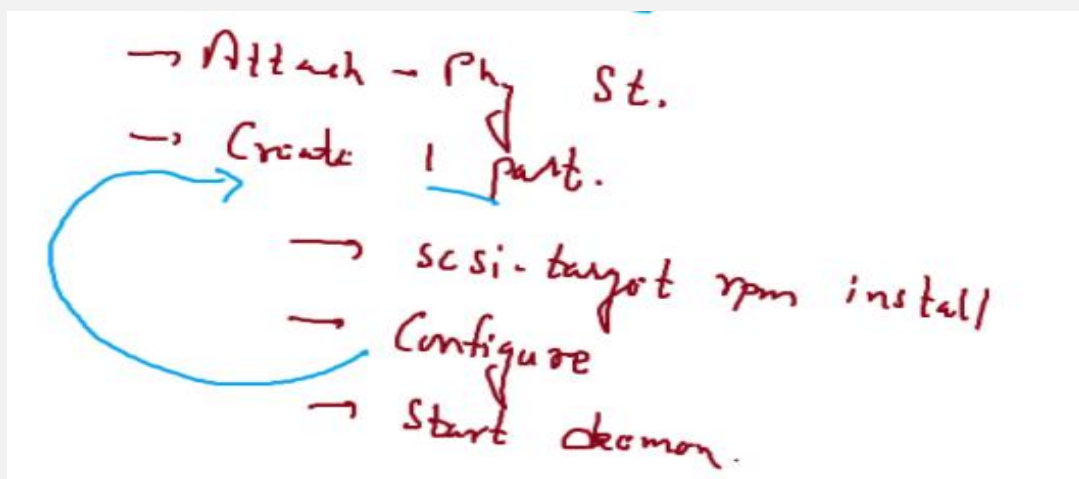 → Attach - Phy St.
→ Create 1 part.
→ scsi-target rpm install
→ Configure
→ Start deamon.